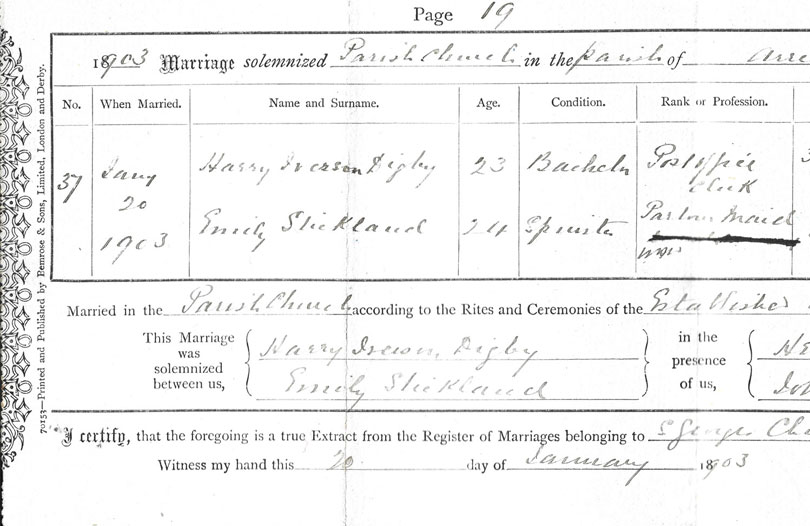 Page 19
1903 Marriage solemnized Parish Church in the parish of
No. When Married. Name and Surname. Age. Condition. Rank or Profession.
37 Jany Harry Iverson Digby 23 Bachelr Post Office
20 clerk
1903 Emily Stickland 24 Spinster Parlour Maid
Married in the Parish Church according to the Rites and Ceremonies of the Established
This Marriage was solemnized between us,
Harry Iverson Digby
Emily Stickland
in the presence of us,
I certify, that the foregoing is a true Extract from the Register of Marriages belonging to St Georges
Witness my hand this 20 day of January 1903
70153—Printed and Published by Bemrose & Sons, Limited, London and Derby.